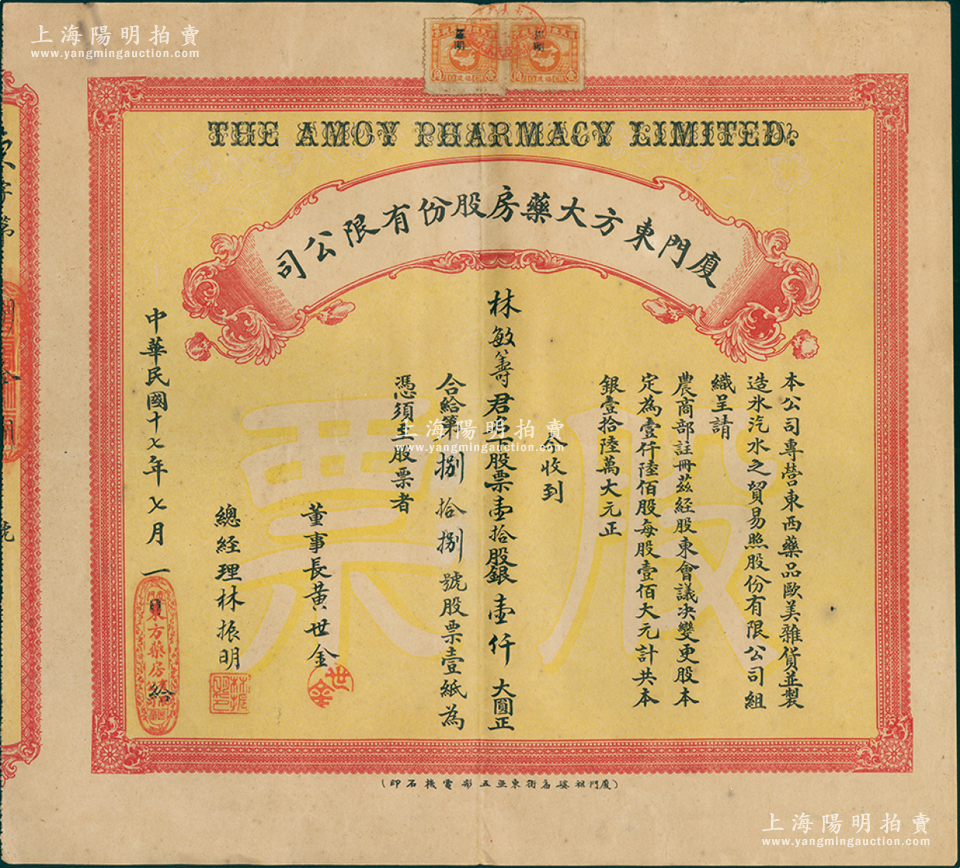 上海陽明拍賣
www.yangmingauction.com
THE AMOY PHARMACY LIMITED.
廈門東方大藥房股份有限公司
本公司專營東西藥品歐美雜貨並製
造氷汽水之貿易照股份有限公司組
織呈請
農商部註冊茲經股東會議决變更股本
定為壹仟陸佰股每股壹佰大元計共本
銀壹拾陸萬大元正
今收到
林敏籌君名下股票壹拾股銀壹仟大圓正
合給第捌拾捌號股票壹紙為
憑須至股票者
董事長黃世金
世金
總經理林振明
林振
中華民國十七年七月一日給
東方藥房
字第
號
股票
上海陽明拍賣
www.yangmingauction.com
(廈門祖婆為街東亞五彩電機石印)
上海陽明拍賣
www.yangmingauction.com